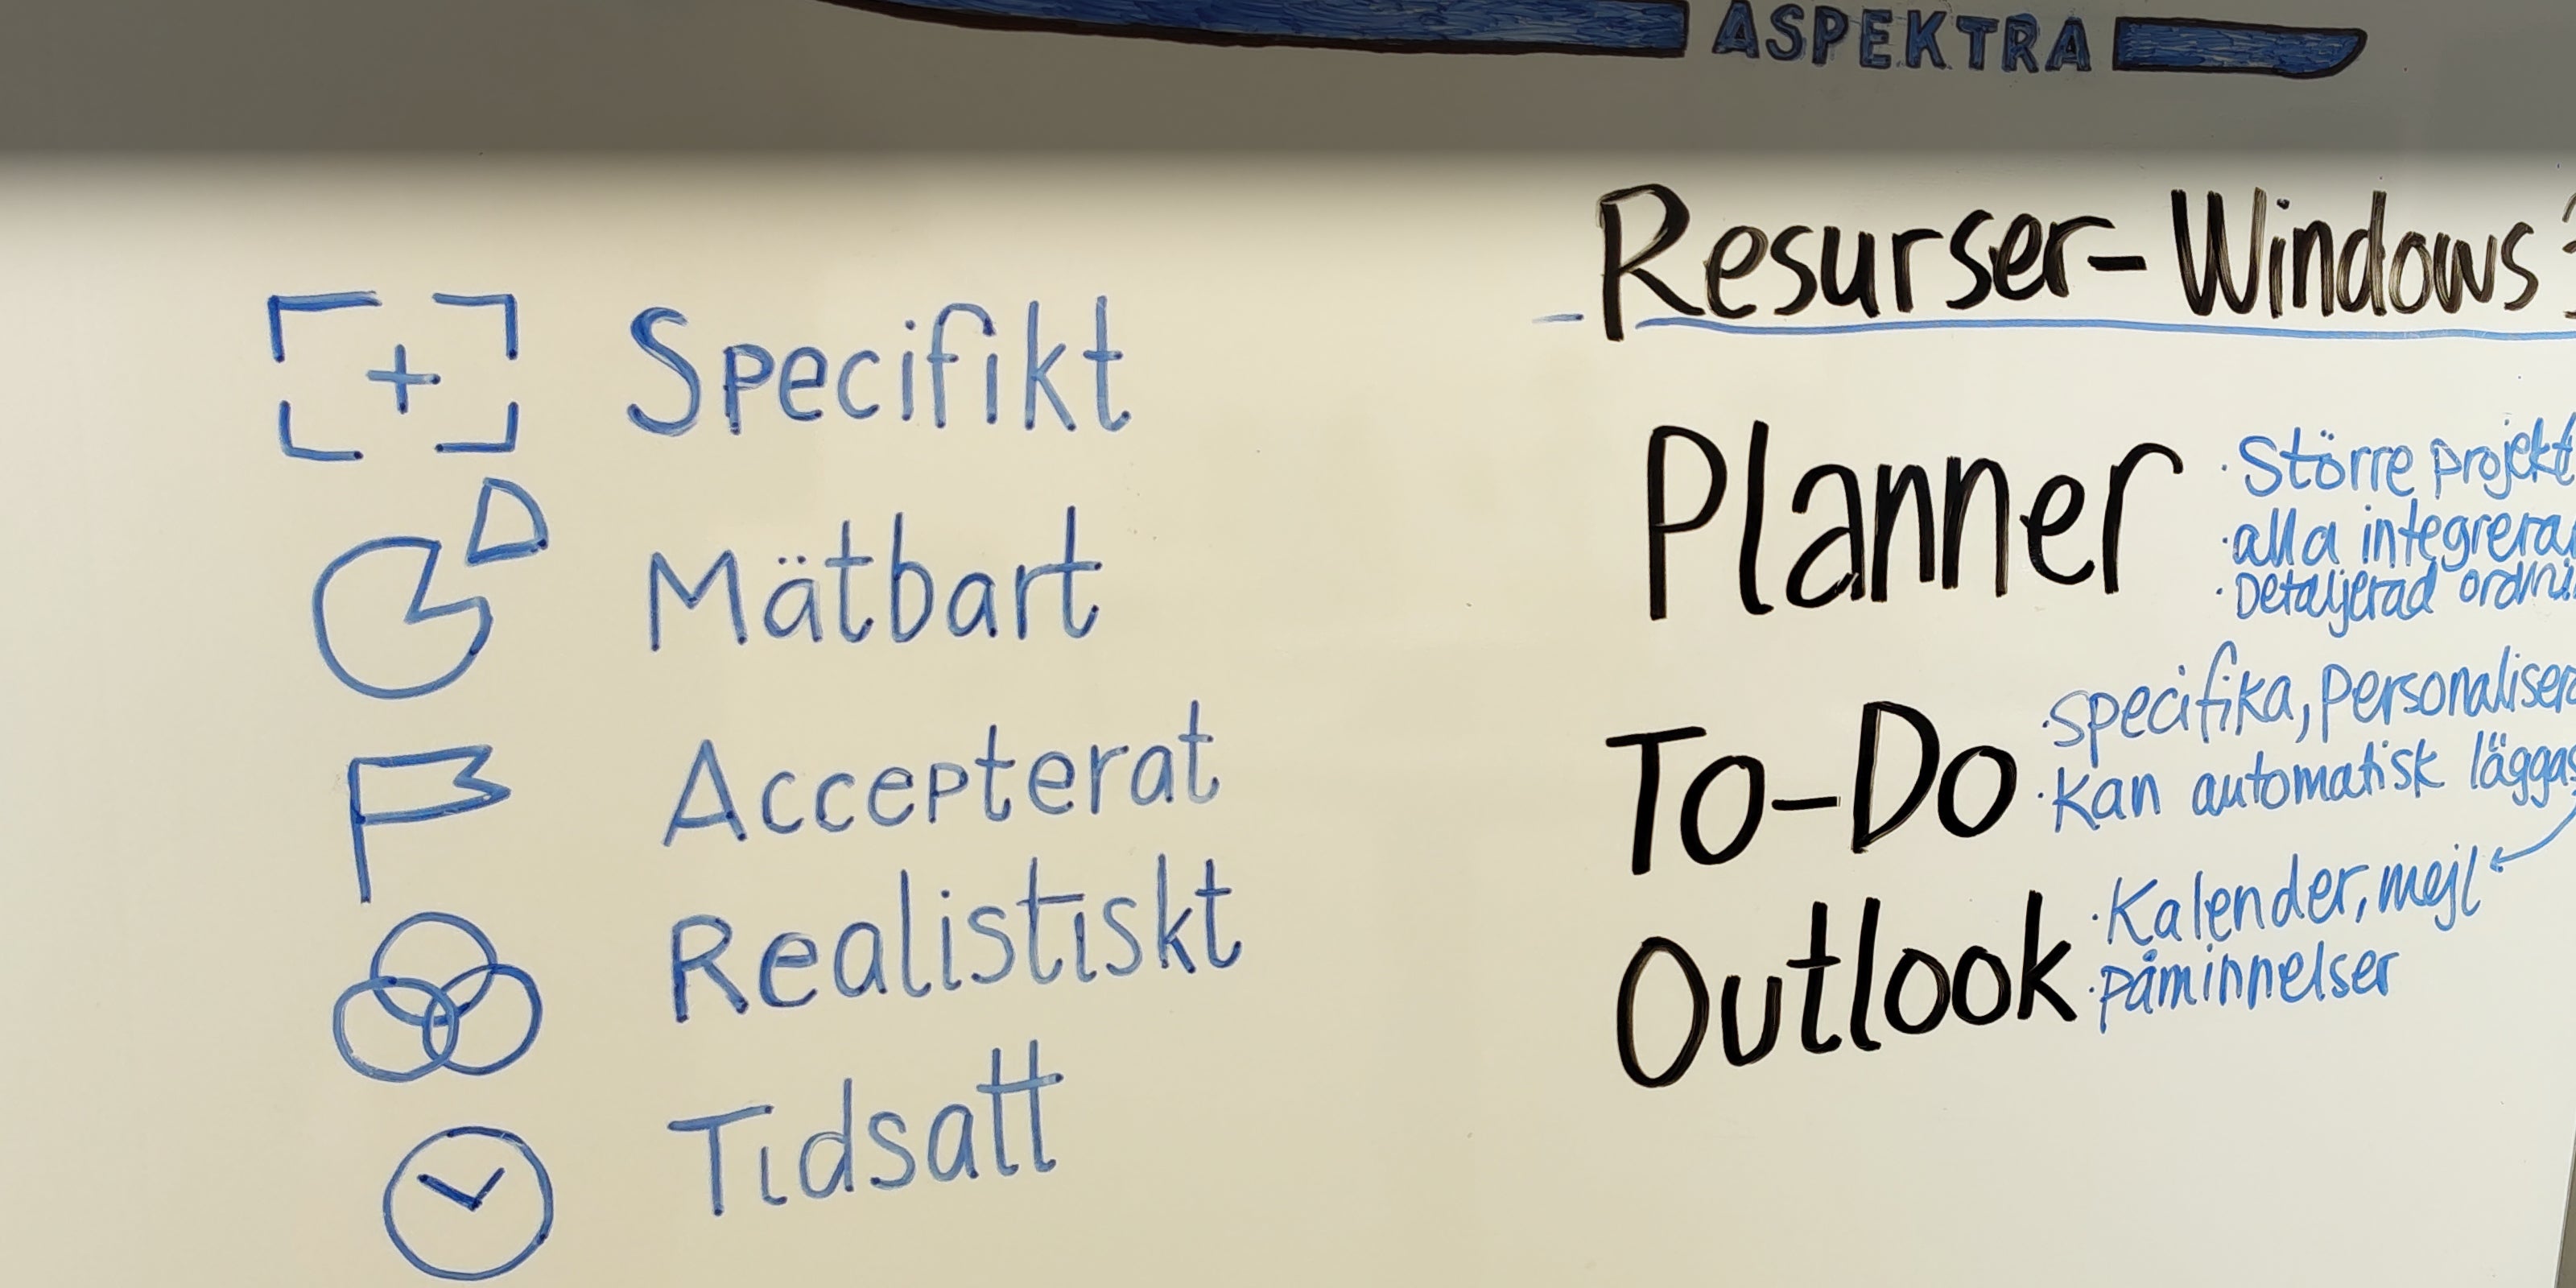 ASPEKTRA
Specifikt
Mätbart
Accepterat
Realistiskt
Tidsatt
Resurser- Windows
Planner
· Större projekt
· alla integrera
· Detaljerad
To-Do
· specifika, personaliser
· kan automatisk läggas
Outlook
· Kalender, mejl
· påminnelser